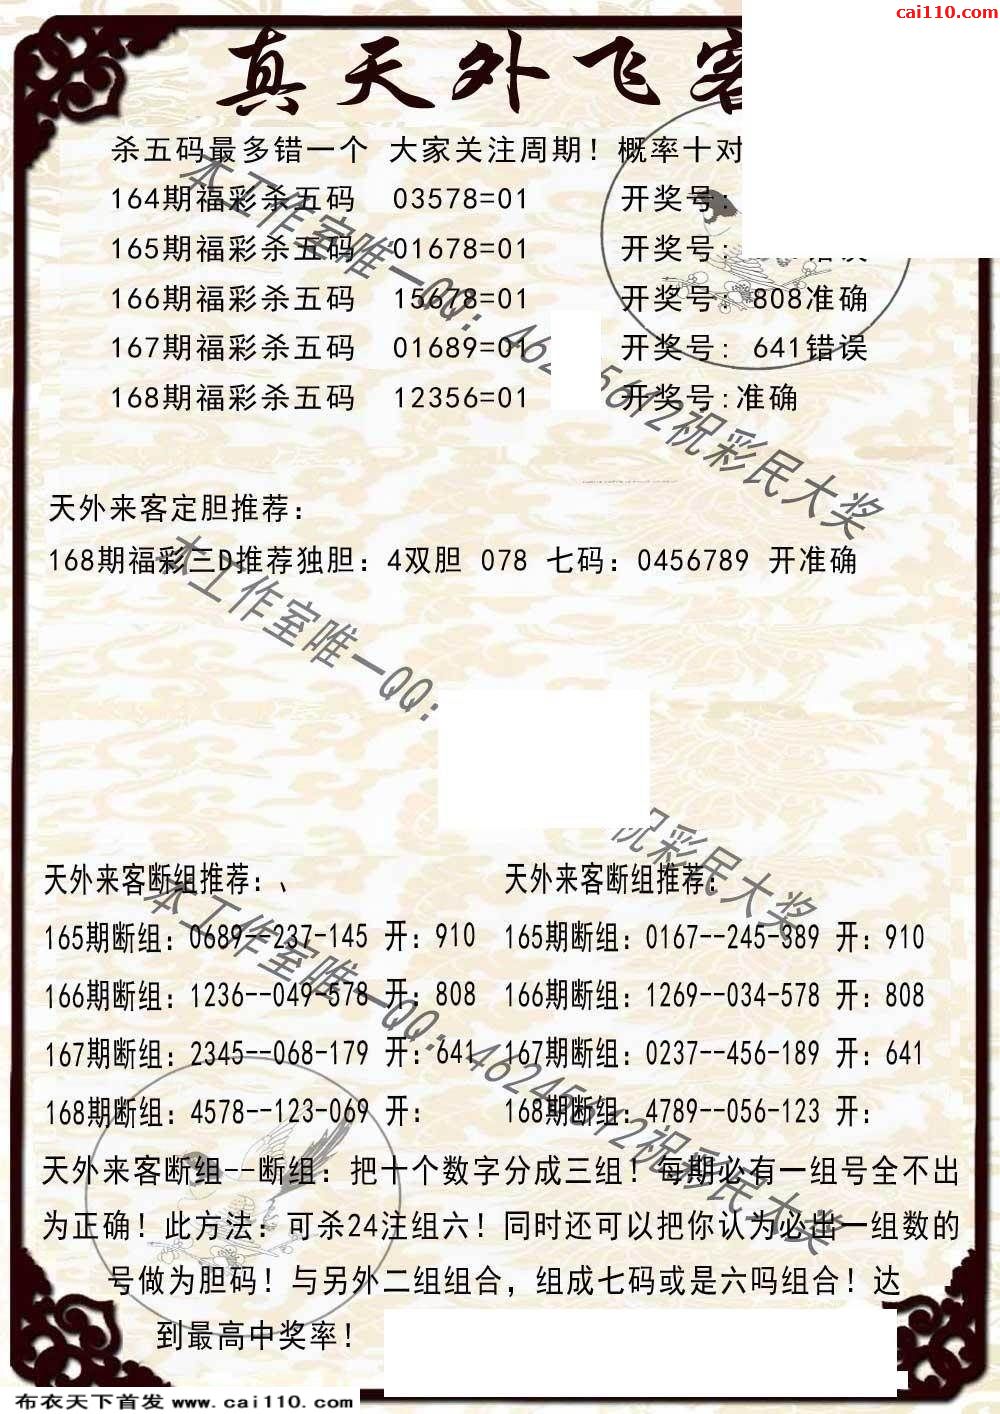 cai110.com
真天外飞客
杀五码最多错一个 大家关注周期！概率十对
164期福彩杀五码 03578=01 开奖号:
165期福彩杀五码 01678=01 开奖号: 错误
166期福彩杀五码 15678=01 开奖号: 808准确
167期福彩杀五码 01689=01 开奖号: 641错误
168期福彩杀五码 12356=01 开奖号:准确
本工作室唯一QQ: 462 5612祝彩民大奖
天外来客定胆推荐:
168期福彩三D推荐独胆: 4双胆 078 七码: 0456789 开准确
本工作室唯一QQ: 祝彩民大奖
天外来客断组推荐:、 天外来客断组推荐:
165期断组: 0689--237-145 开: 910 165期断组: 0167--245-389 开: 910
166期断组: 1236--049-578 开: 808 166期断组: 1269--034-578 开: 808
167期断组: 2345--068-179 开: 641 167期断组: 0237--456-189 开: 641
168期断组: 4578--123-069 开: 168期断组: 4789--056-123 开:
本工作室唯一QQ: 46245612祝彩民大奖
天外来客断组--断组: 把十个数字分成三组！每期必有一组号全不出
为正确！此方法: 可杀24注组六！同时还可以把你认为必出一组数的
号做为胆码！与另外二组组合, 组成七码或是六吗组合！达
到最高中奖率！
布衣天下首发 www.cai110.com